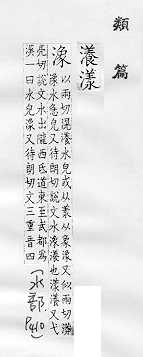 類篇
瀁漾
潒 以兩切滉瀁水皃或从羕从象潒又似兩切瀁
潒水皃又待朗切說文水潒瀁也漾瀁又弋
亮切說文水出隴西氐道東至武都為
漢一曰水皃潒又待朗切文三重音四
(水部
P410)